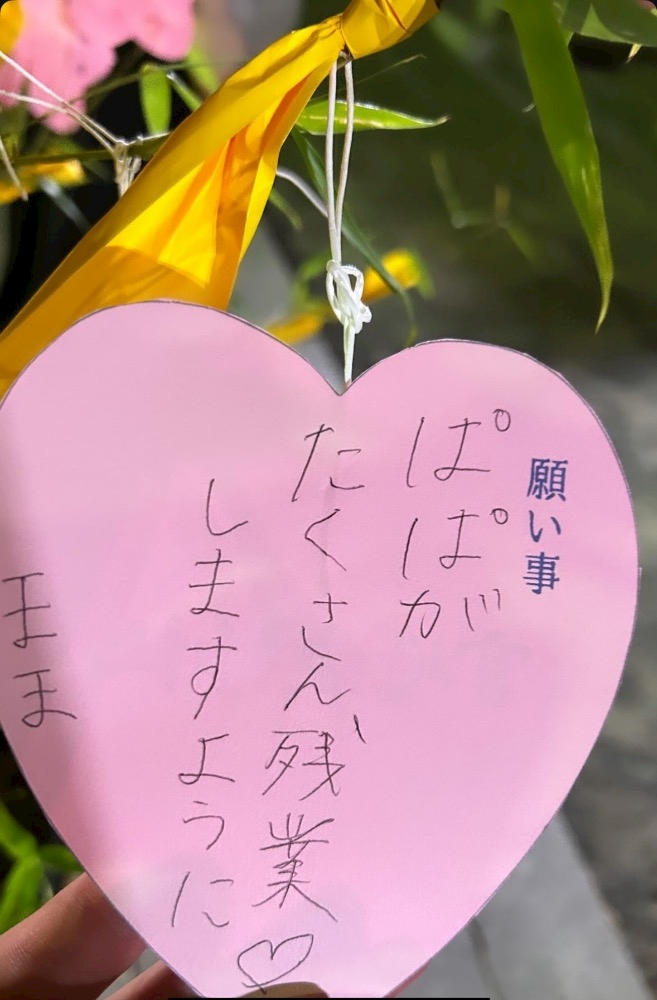 願い事
ぱぱが
たくさん残業
しますように♡
まま